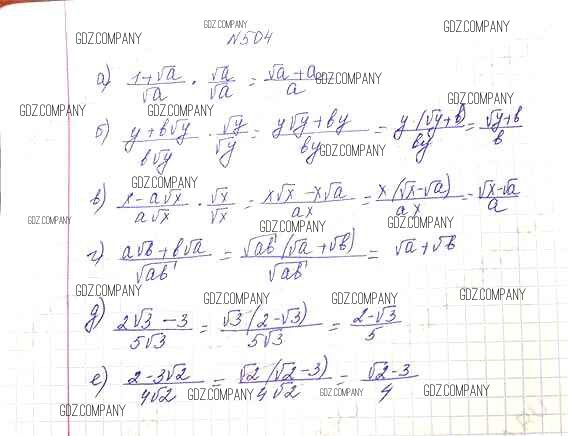 GDZ.COMPANY GDZ.COMPANY GDZ.COMPANY
N504
а) (1+√a)/√a · √a/√a = (√a+a)/a GDZ.COMPANY
GDZ.COMPANY GDZ.COMPANY GDZ.COMPANY
б) (y+b√y)/(b√y) · √y/√y = (y√y+by)/(by) = (y·(√y+b))/(by) = (√y+b)/b
GDZ.COMPANY
GDZ.COMPANY GDZ.COMPANY
в) (x-a√x)/(a√x) · √x/√x = (x√x-x√a)/(ax) = (x(√x-√a))/(ax) = (√x-√a)/a
GDZ.COMPANY GDZ.COMPANY GDZ.COMPANY
г) (a√b+b√a)/√ab = (√ab(√a+√b))/√ab = √a+√b
GDZ.COMPANY GDZ.COMPANY GDZ.COMPANY GDZ.COMPANY
д) (2√3-3)/(5√3) = (√3(2-√3))/(5√3) = (2-√3)/5
е) (2-3√2)/(4√2) = (√2(√2-3))/(4√2) = (√2-3)/4
GDZ.COMPANY GDZ.COMPANY GDZ.COMPANY GDZ.COMPANY